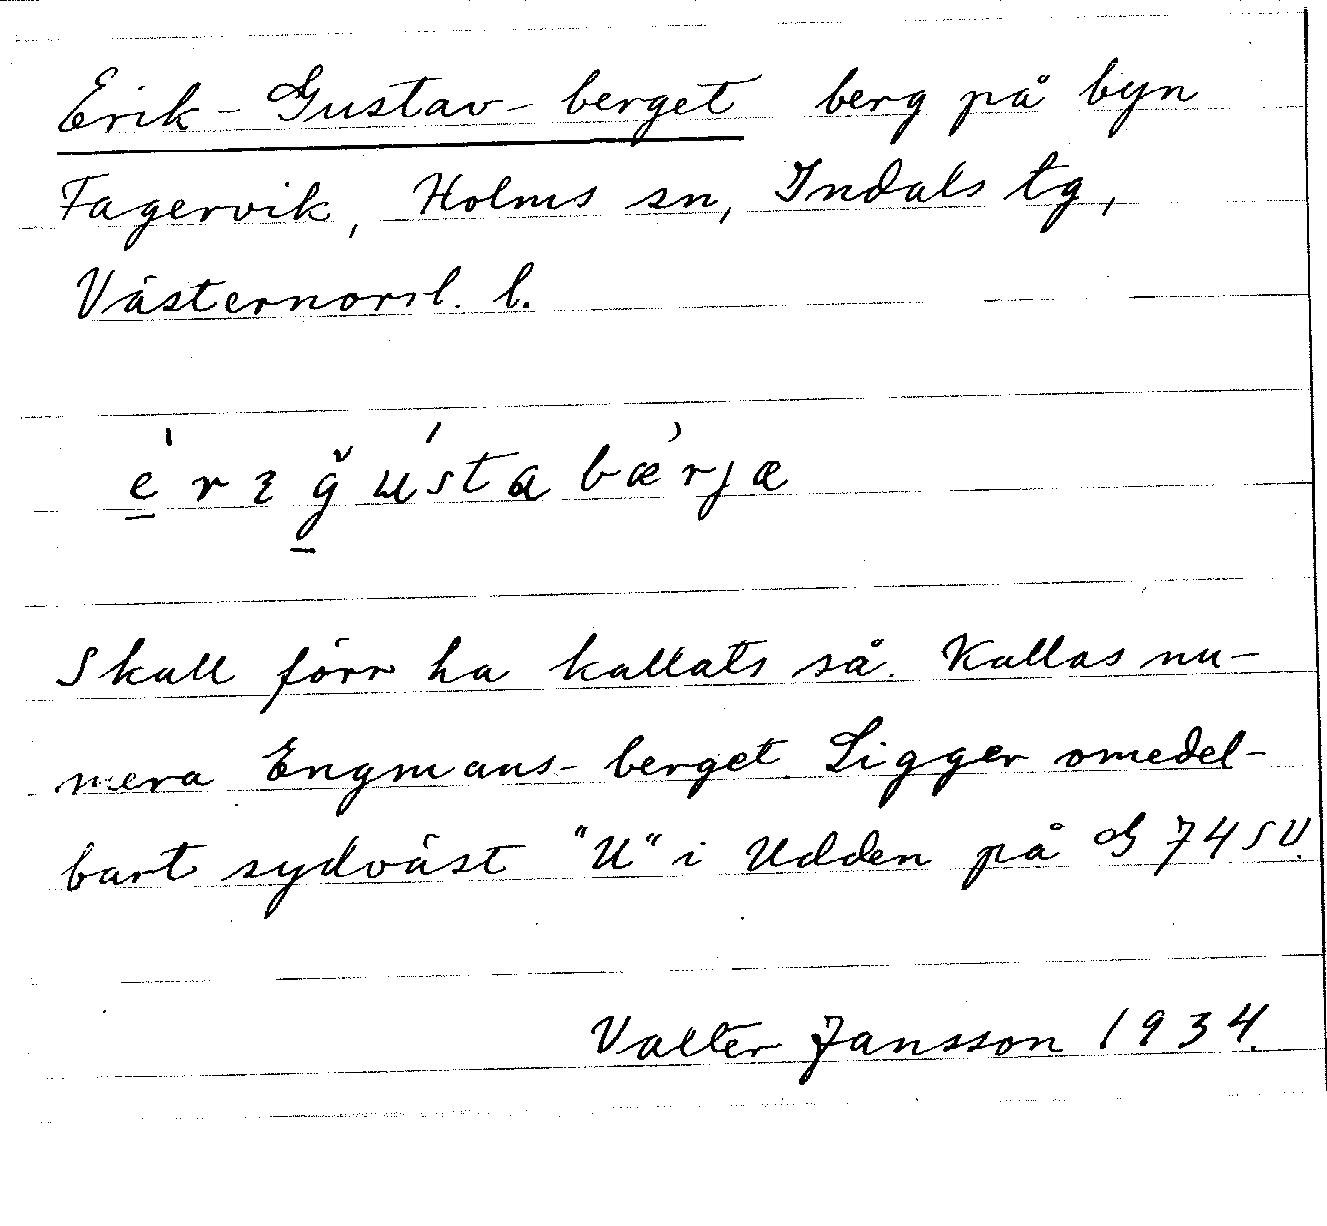 Erik-Gustav-berget berg på byn
Fagervik, Holms sn, Indals tg,
Västernorrl. l.
Skall förr ha kallats så. Kallas nu-
mera Engmans-berget. Ligger omedel-
bart sydväst "U" i Udden på G 74 SV.
Valter Jansson 1934.